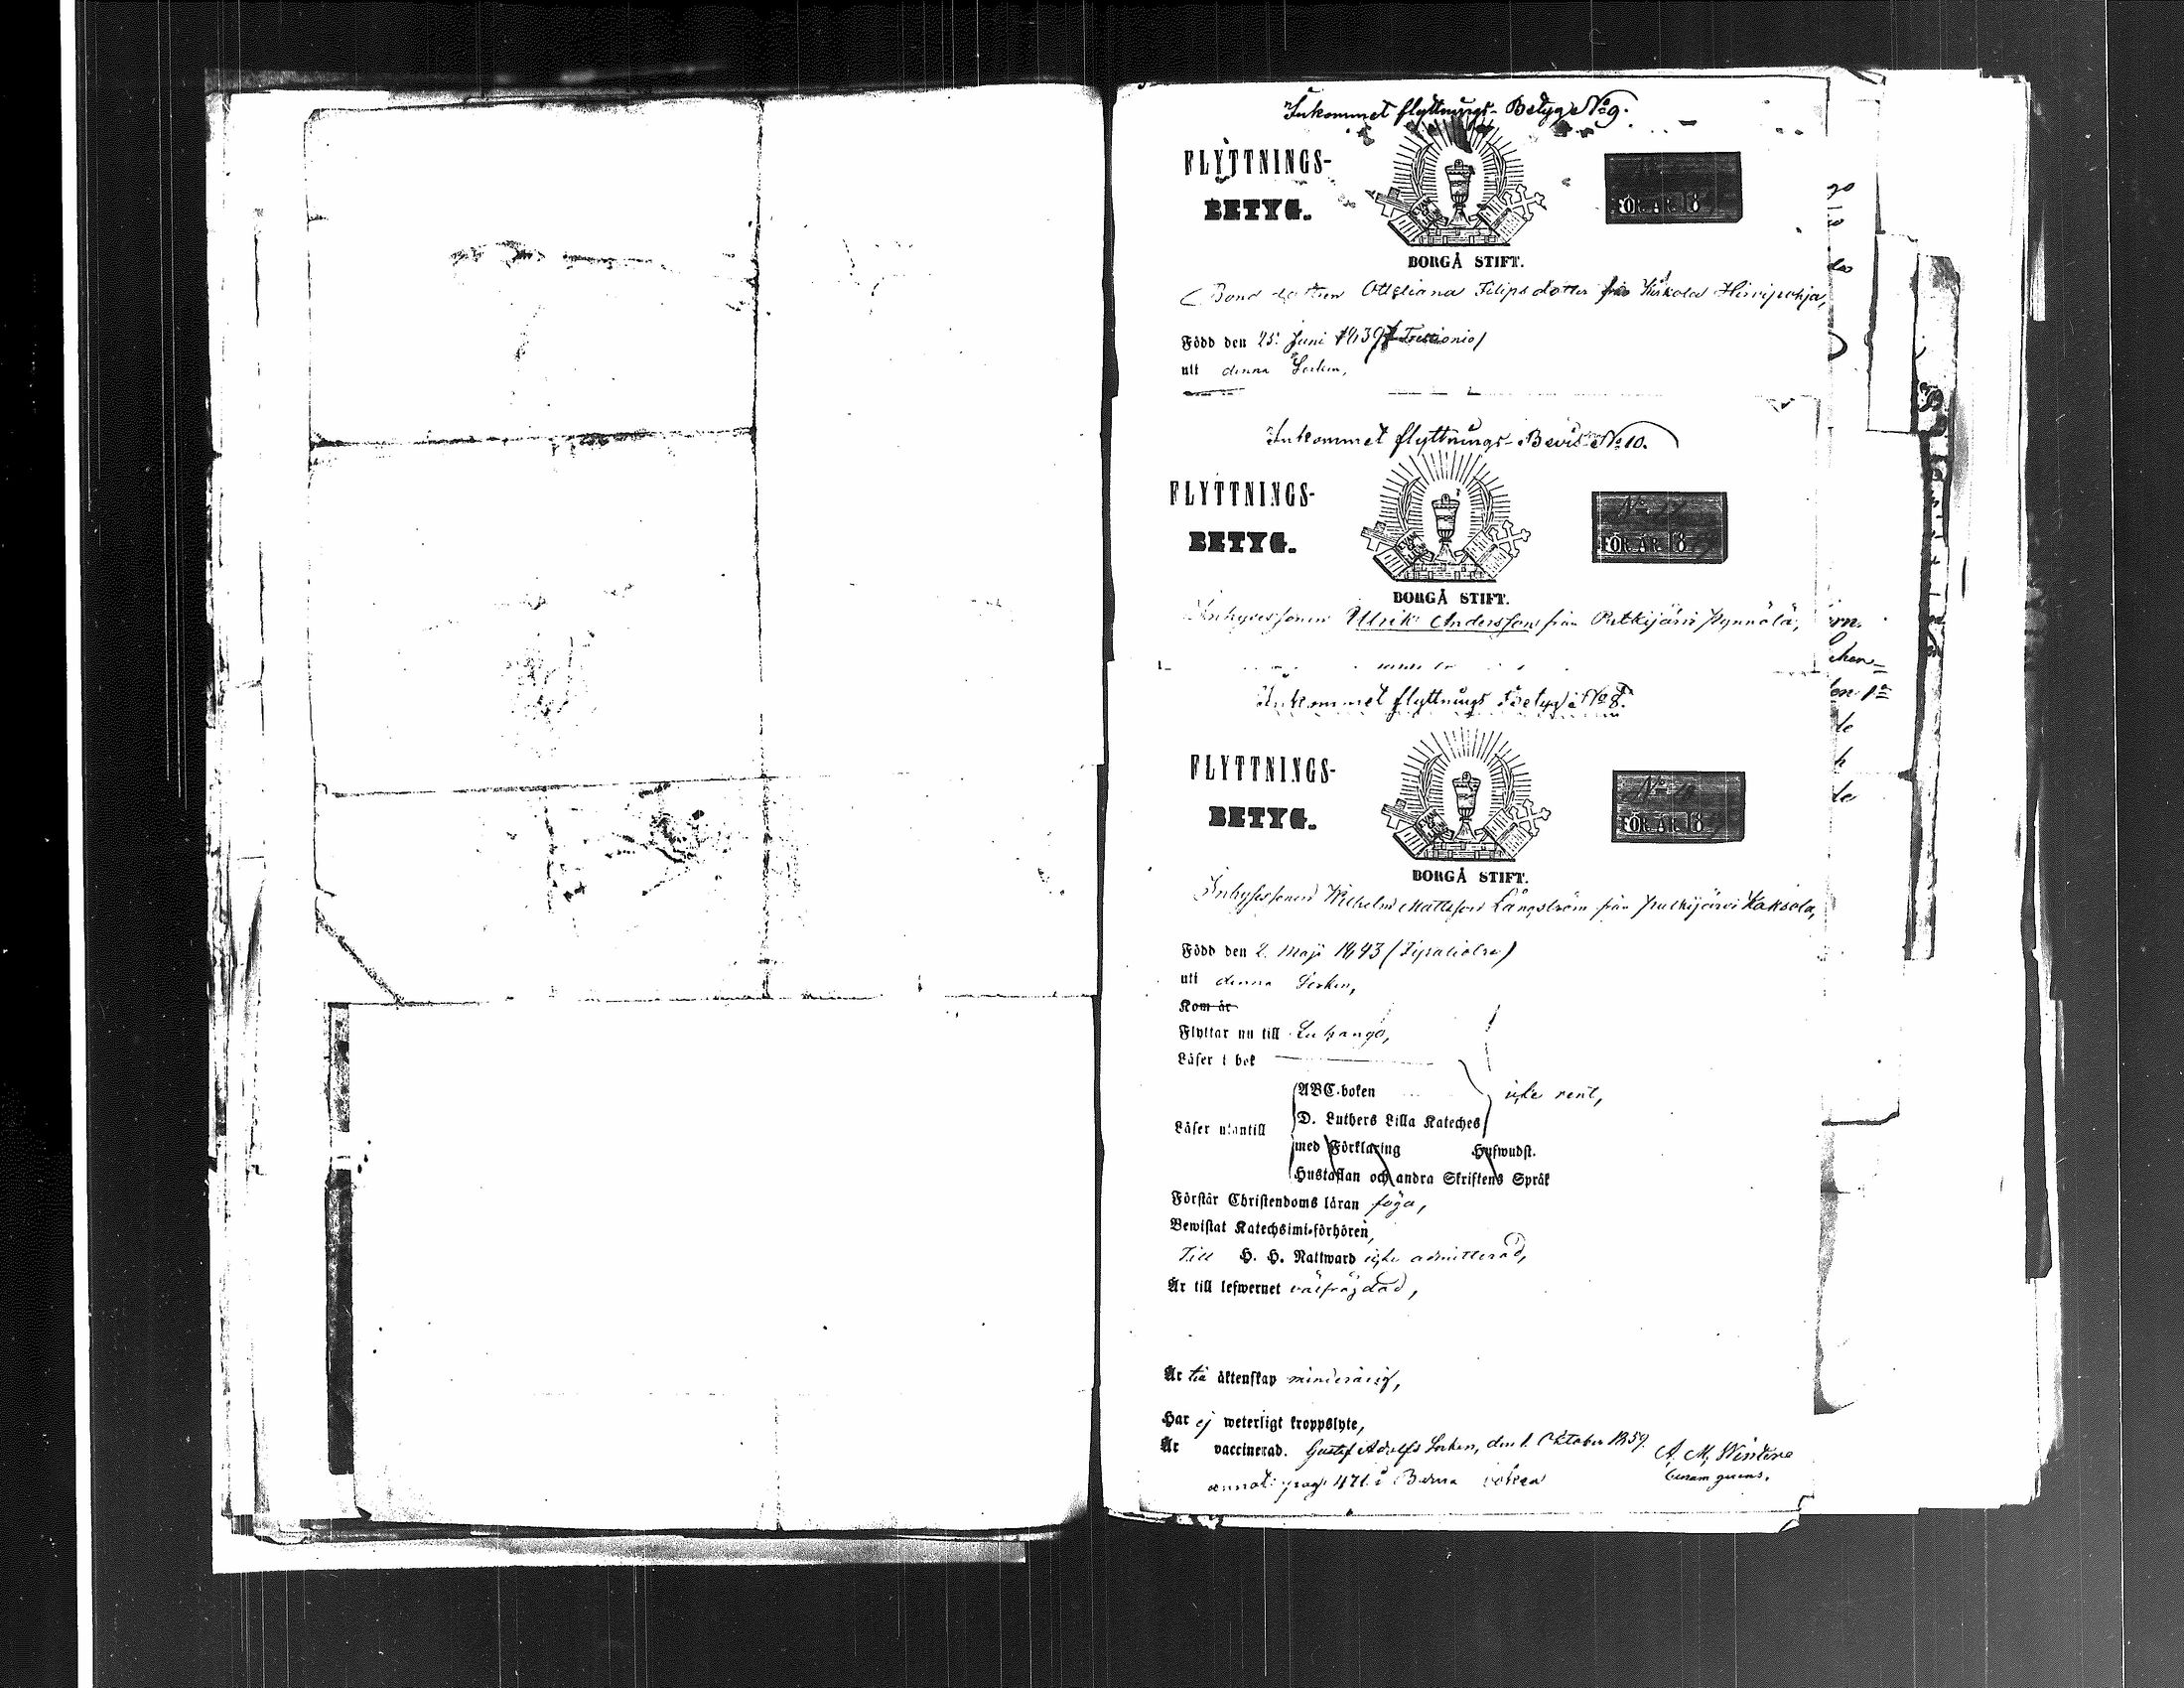 Inkommet flyttnings-Betyg No 9.
FLYTTNINGS-
BETYG.
FÖR ÅR 18
BORGÅ STIFT.
Bond dottren Ottiliana Filips dotter från Kirkola Hirvipohja,
Född den 25. Juni 1839
uti denna Socken,
Inkommet flyttnings-Bevis No 10.
FLYTTNINGS-
BETYG.
No 17
FÖR ÅR 18
BORGÅ STIFT.
Inhysessonen Ulrik Andersson från Putkijärvi Hynnälä,
Inkommet flyttnings Betyg No 8.
FLYTTNINGS-
BETYG.
No
FÖR ÅR 18
BORGÅ STIFT.
Inhysessonen Wilhelm Mattsson Långström från Putkijärvi Kaksola,
Född den 2. Maji 1843
uti denna Socken,
Kom år
Flyttar nu till Luhango,
Läser i bok
ABC-boken icke rent,
D. Luthers Lilla Kateches
Läser utantill
med Förklaring Hufwudst.
Hustaflan och andra Skriftens Språk
Förstår Christendoms läran föga,
Bewistat Katechsimi-förhören,
Till H. H. Nattward icke admitterad,
Är till lefwernet välfräjdad,
Är till äktenskap minderårig,
Har ej weterligt kroppslyte,
Är vaccinerad. Gustaf Adolfs Socken, den 1. Oktober 1859.
A. M. Winter
Curam gerens.
annot: pag. 471. i Barna boken